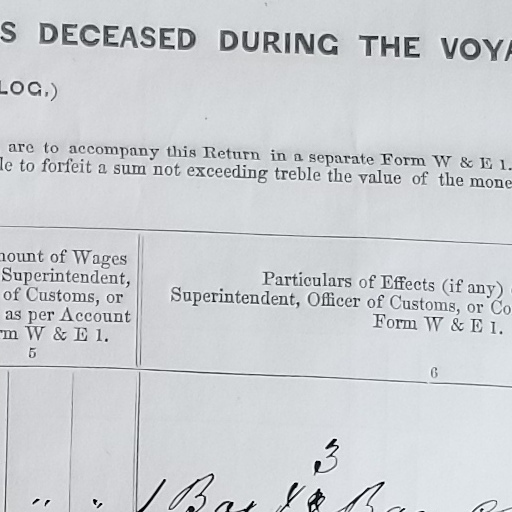 S DECEASED DURING THE VOYA
LOG.)
are to accompany this Return in a separate Form W & E 1.
le to forfeit a sum not exceeding treble the value of the mone
nount of Wages
Superintendent,
of Customs, or
as per Account
rm W & E 1.
5
Particulars of Effects (if any)
Superintendent, Officer of Customs, or Co
Form W & E 1.
6
3
" " 1 Bag &